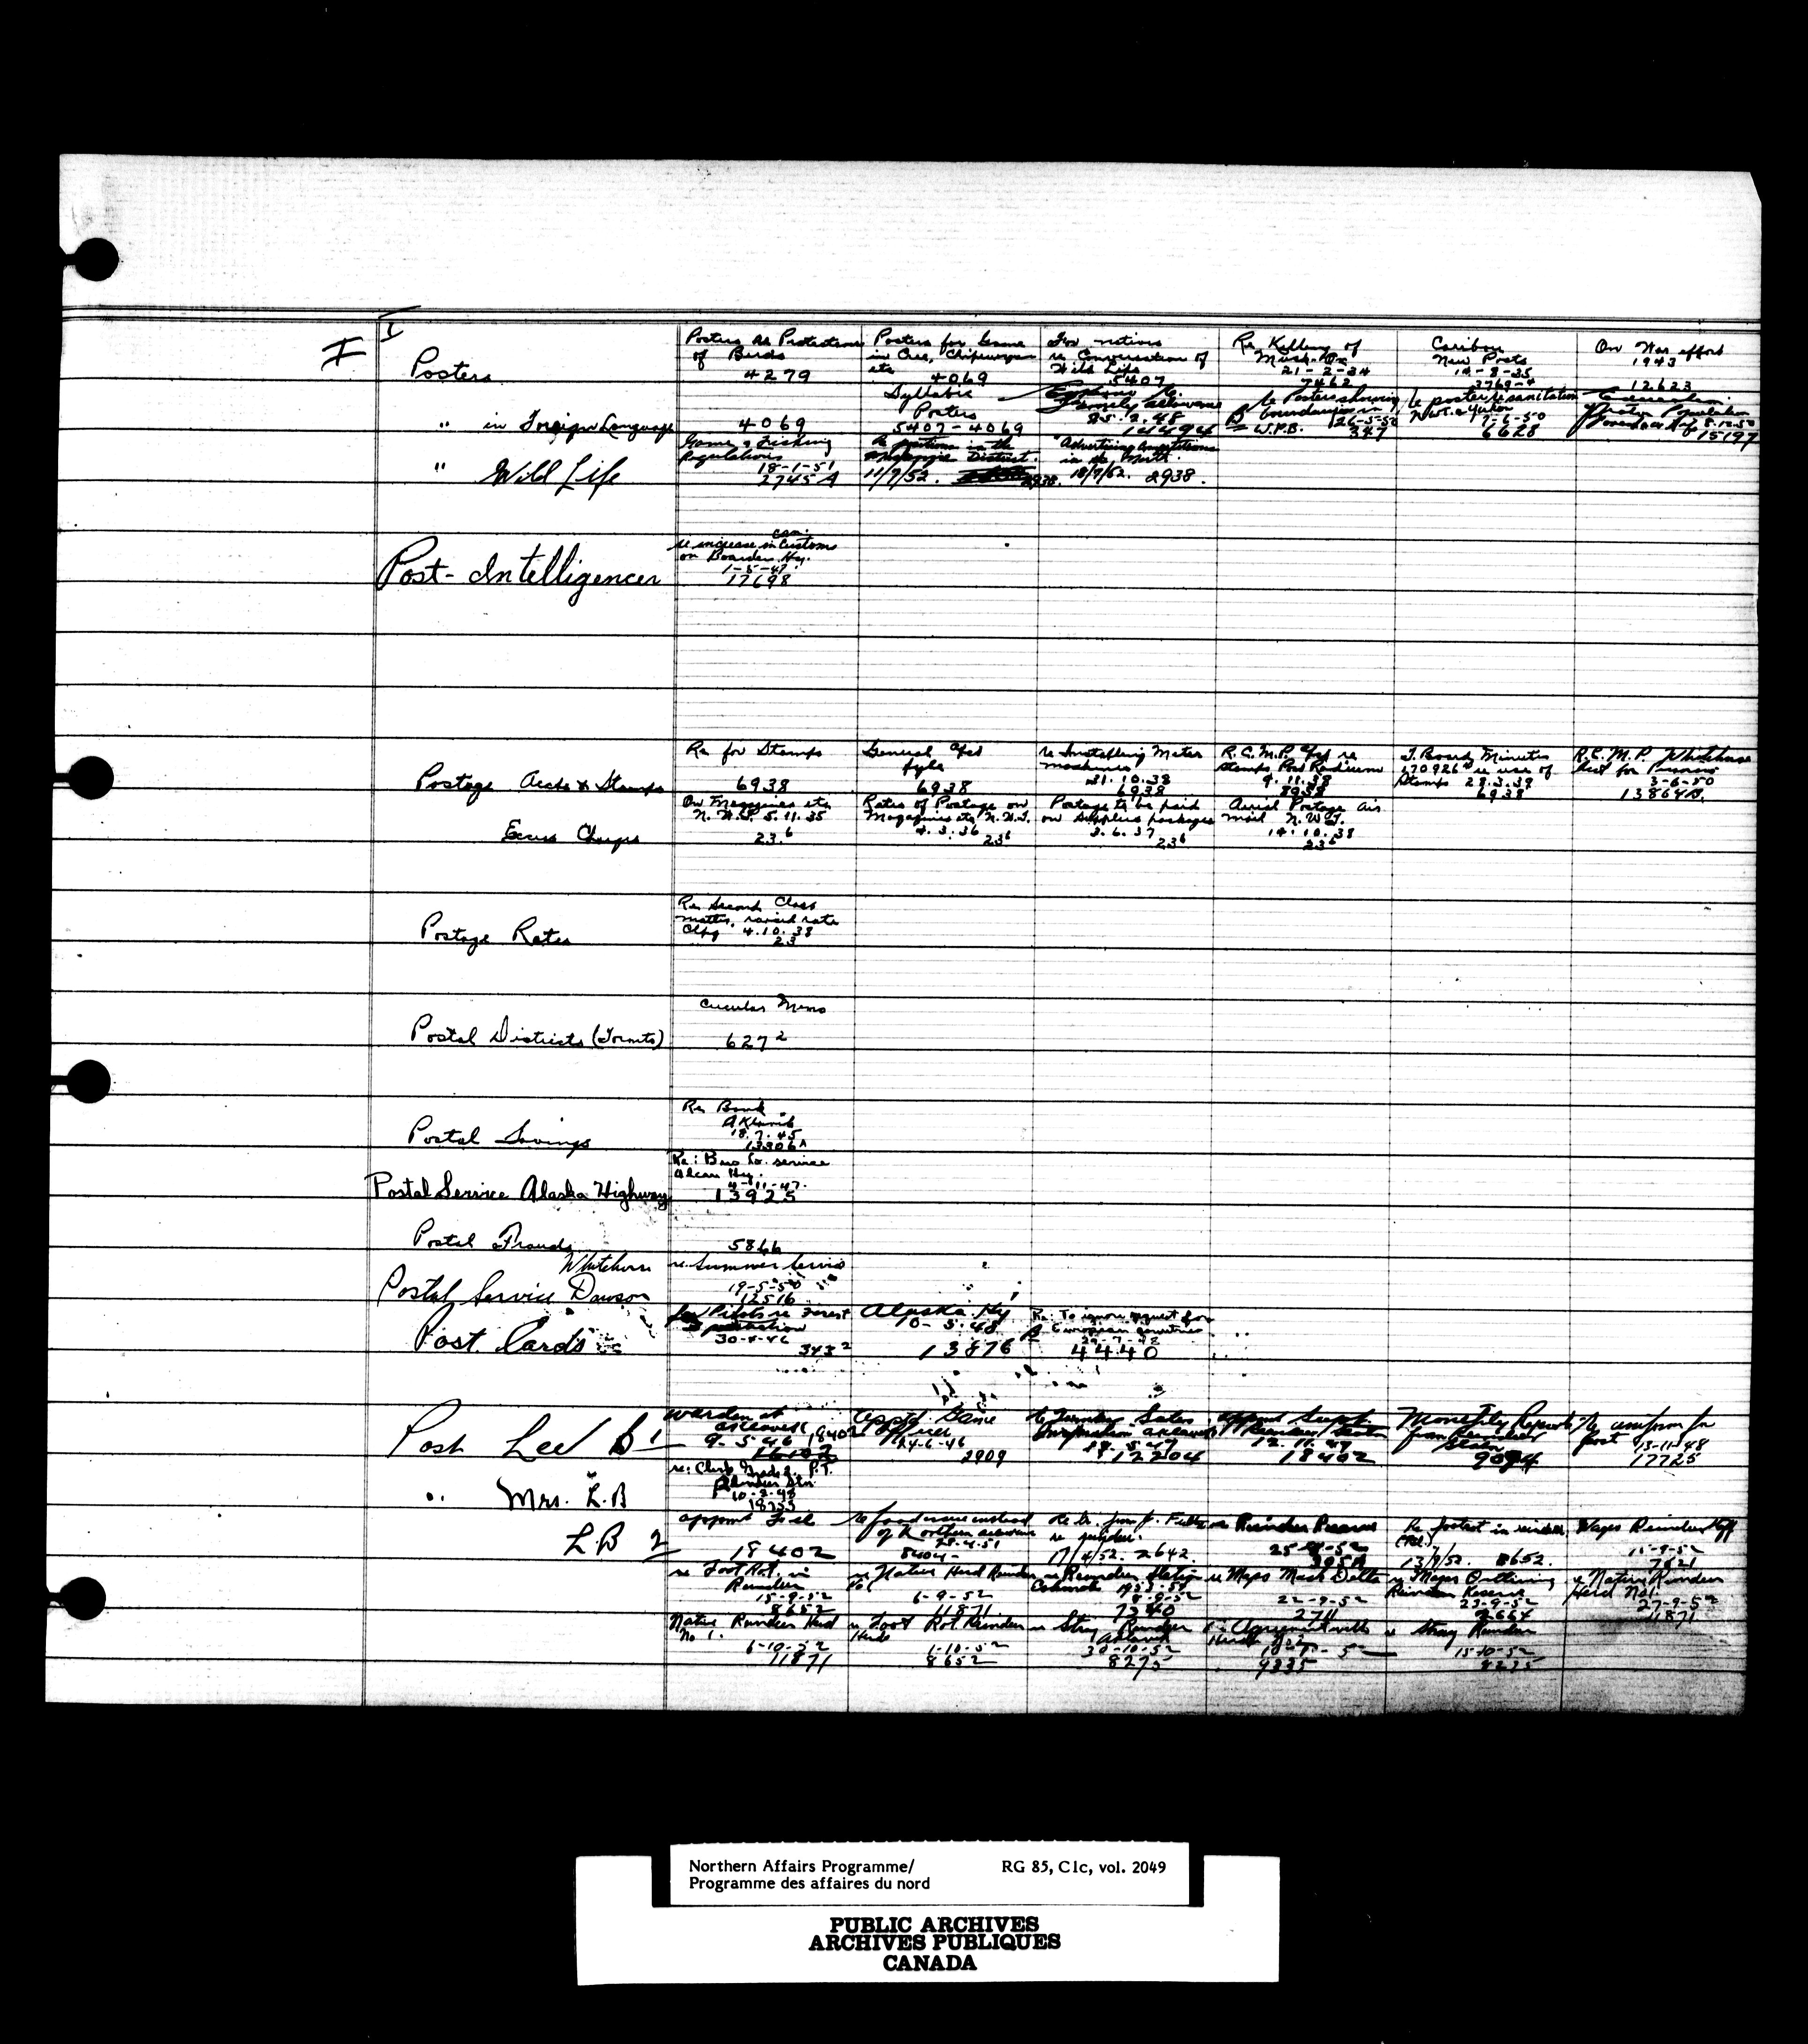 I
Posters
Posters Re Protection of Birds
4279
Posters for Game in Cree, Chipewyan etc
4069
For natives re Conservation of Wild Life
5407
Re Killing of Musk-Ox
21-2-34
7462
Caribou New Posts
14-8-35
3769-4
On War effort
1943
12623
" in Foreign Language
4069
Syllabic Posters
5407-4069
Family allowance
25.9.48
re Posters showing boundaries in W.P.B.
26-5-50
347
re posters re sanitation N.W.T. & Yukon
7-6-50
6628
15197
" Wild Life
Game & Fishing Regulations
18-1-51
2745 A
re positions in the Mackenzie District.
11/7/52.
2938
Advertising Competitions in the North.
18/7/52. 2938.
Post-Intelligencer
re increase in Customs on Boarder Hy.
1-5-47
17698
Postage Accts & Stamps
Re for Stamps
6938
General
fyle
6938
re Installing Meter machines
31.10.38
6938
R.C.M.P. re Stamps Port Radium
9.11.38
8938
T. Board Minutes 170926 re use of Stamps 28.3.39
6938
R.C.M.P. Whitehorse
for Prisoners
3-6-50
Excess Charges
On Magazines etc N.W.T. 5.11.35
23.6
Rates of Postage on Magazines etc N.W.T.
4.3.36
23 6
Postage to be paid on Supplies packages
3.6.37
23 6
Aerial Postage Air mail N.W.T.
14.10.38
23 6
Postage Rates
Re Second Class matter, raised rate
4.10.38
23
Postal Districts (Toronto)
Circular Memo
627 2
Postal Savings
Re Bank
Aklavik
18.7.45
13306 A
Postal Service Alaska Highway
Re: Bus Co. service Alcan Hy.
4-11-47.
13925
Postal Frauds
5866
Whitehorse
Postal Service Dawson
re. Summer Service
19-5-50
12516
Post Cards
30-4-46
343 2
Alaska Hy
10-5-48
13876
Re: To ignore request for
European countries
29-7-48
4440
Post Lee B 1
Warden at
9-5-46
18402
16102
Apptd Game Officer
24-6-46
2909
12204
appoint Supt. Reindeer Station
12.11.47
18402
Monthly Reports from Reindeer Station
9094
re uniform for Post
13-11-48
17725
" Mrs. L.B
re: Clerk Grade 1. P.T. Reindeer Stn.
10-2-48
18755
L B 2
18402
28.4.51
8404-
17/4/52. 2642.
Re footrot in reindeer
13/9/52. 8652.
Wages Reindeer
15-9-52
7821
re Foot Rot. in Reindeer
15-9-52
8652
re Native Herd Reindeer No 1
6-9-52
11871
re Reindeer Station
18-9-52
7340
re Maps Mack Delta
22-9-52
2711
re Maps Outlining Reindeer Reserve
23-9-52
re Native Reindeer Herd No 1.
27-9-52
11871
Native Reindeer Herd No 1.
6-10-52
11871
re Foot Rot Reindeer Herds
1-10-52
8652
re Stray Reindeer Aklavik
30-10-52
8275
re Agreement with Herd No 2
9335
re Stray Reindeer
15-10-52
8275
Northern Affairs Programme/
Programme des affaires du nord
RG 85, C1c, vol. 2049
PUBLIC ARCHIVES
ARCHIVES PUBLIQUES
CANADA